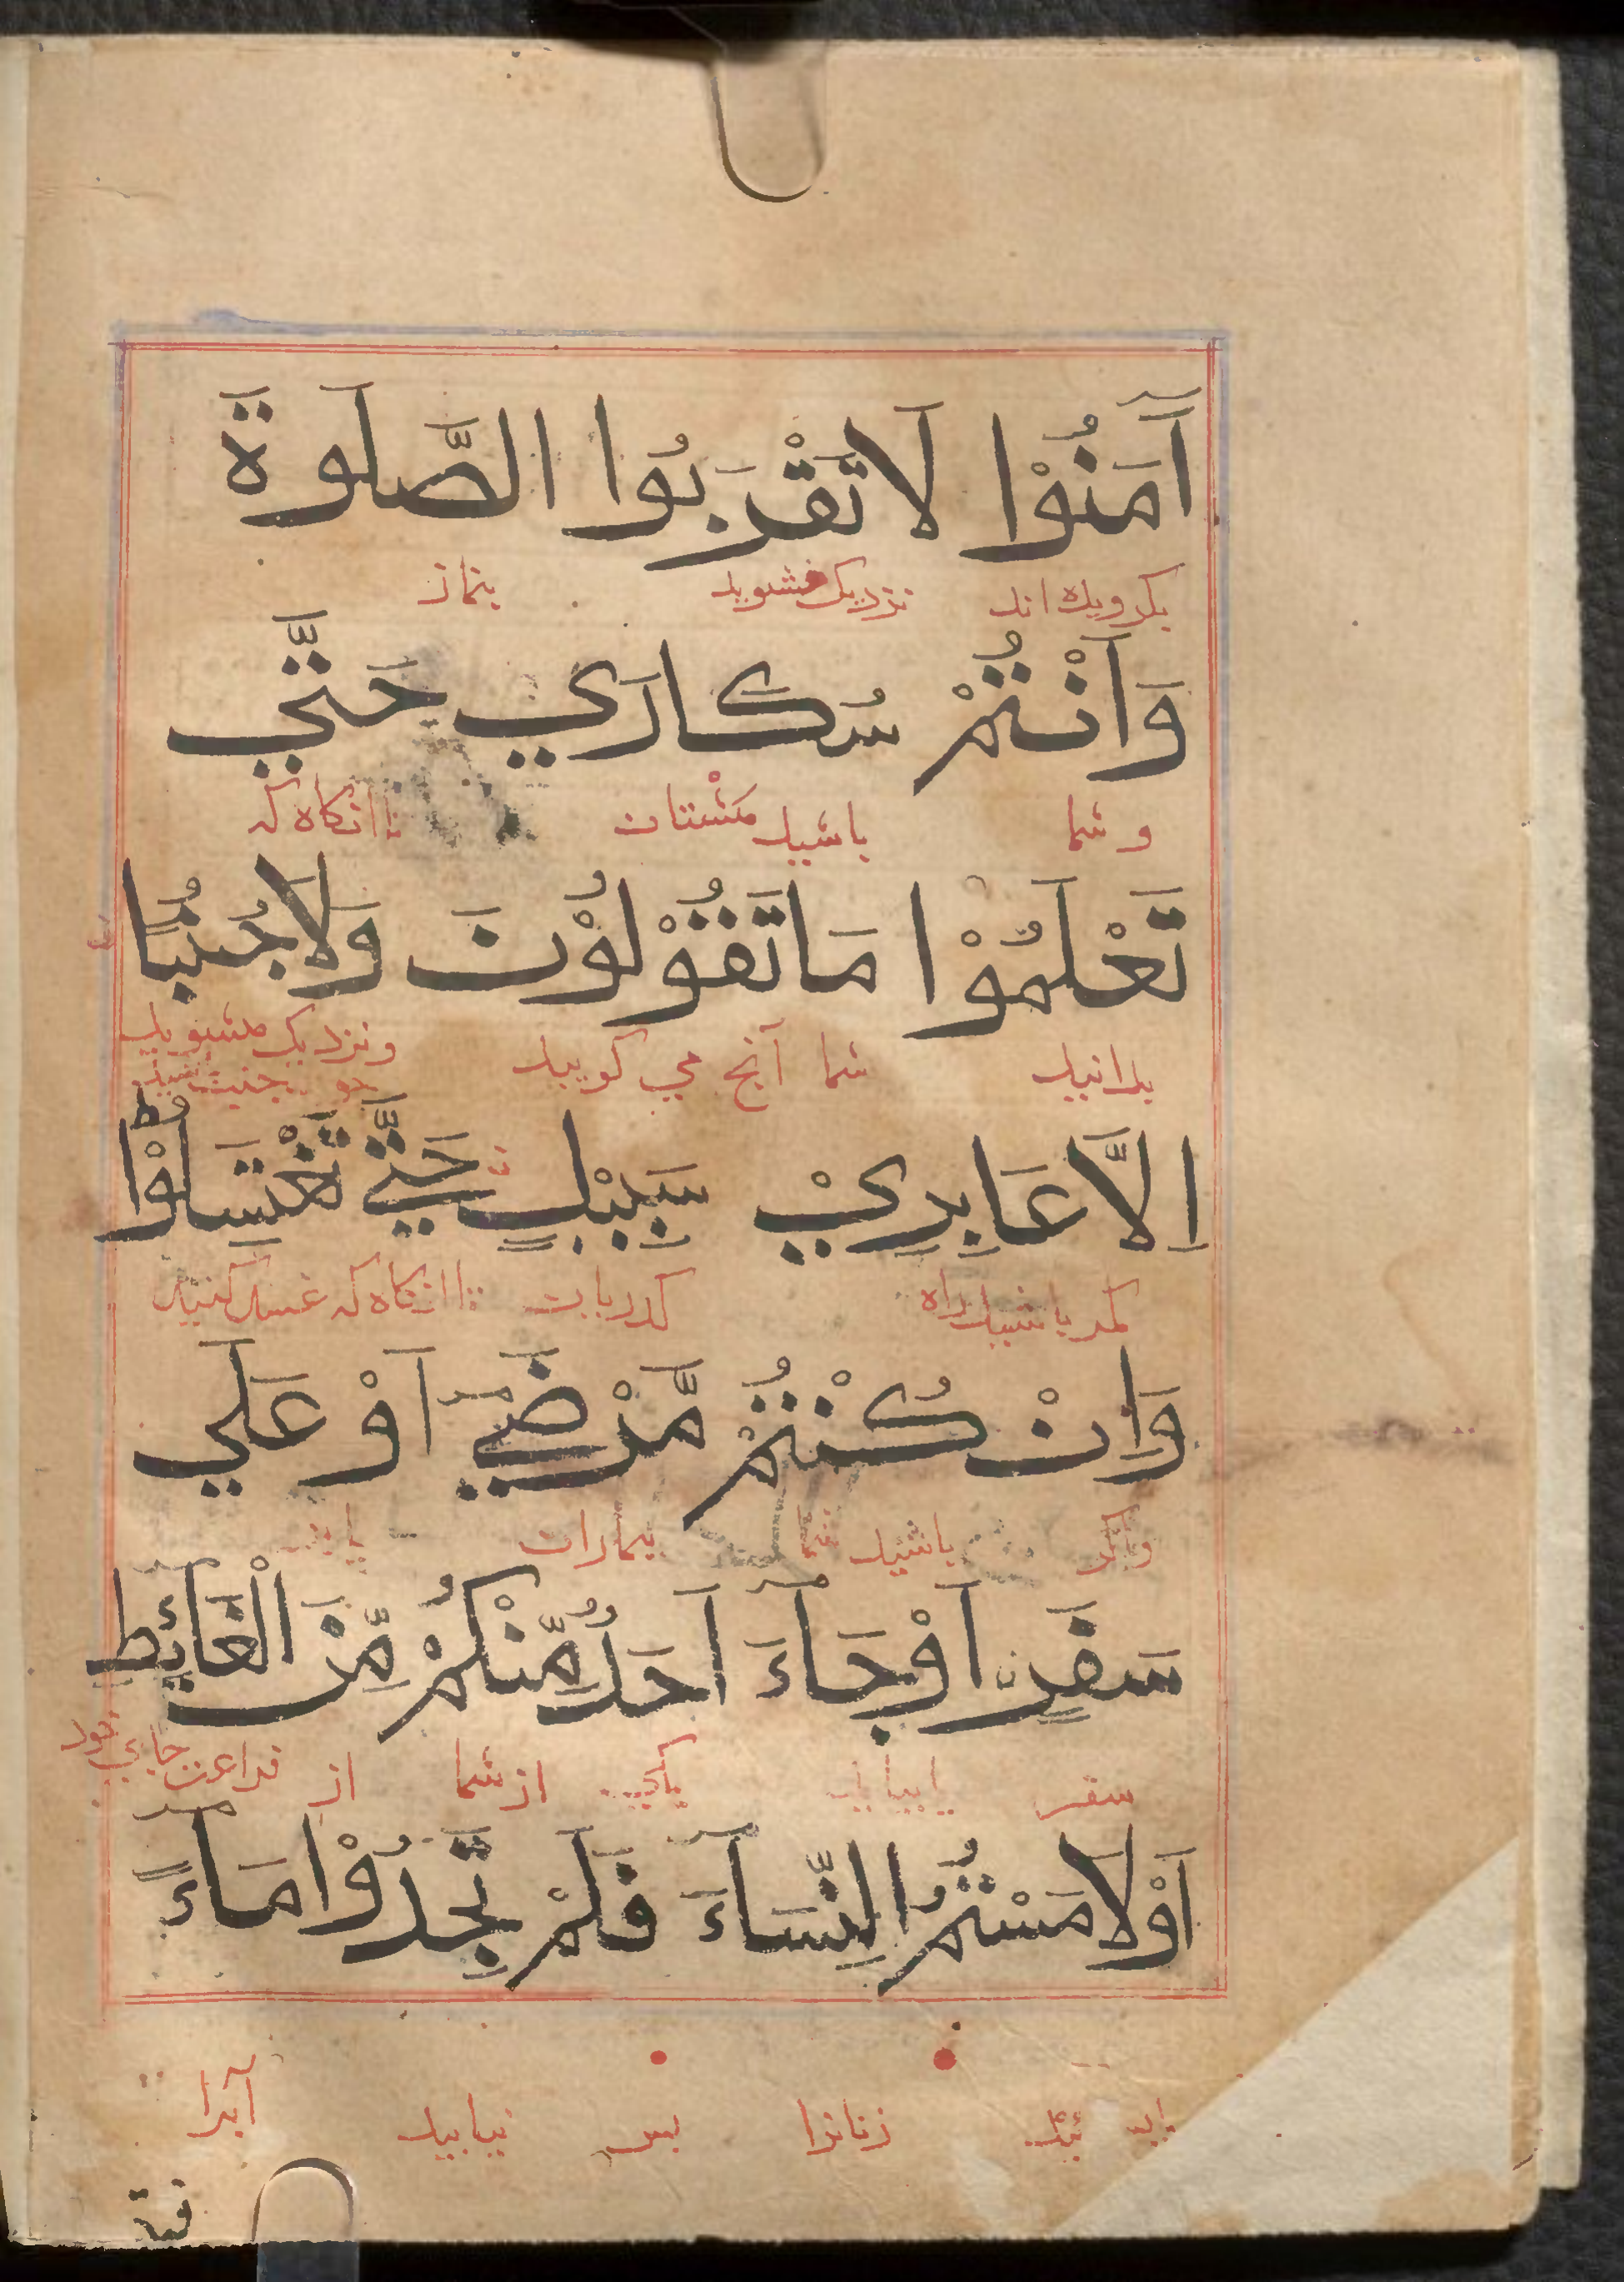 آمَنُوْا لَا تَقْرَبُوا الصَّلَوةَ
بکرویده اند نزدیک مشوید بنماز
وَاَنْتُمْ سُكَارَي حَتَّي
و شما باشید مستان تا انکاه که
تَعْلَمُوْا مَا تَقُوْلُوْنَ وَلَا جُنُبًا
بدانید شما آنج می کویید و نزدیک مشوید
اِلَّا عَابِرِيْ سَبِيْلٍ حَتَّي تَغْتَسِلُوْا
مکر باشید راه کدریان تا انکاه که غسل کنید
وَاِنْ كُنْتُمْ مَّرْضَي اَوْ عَلَي
واکر باشید شما بیماران یا
سَفَرٍ اَوْ جَاءَ اَحَدٌ مِّنْكُمْ مِّنَ الْغَائِطِ
سفر یا بیاید یکی از شما از فراغت جای خود
اَوْ لَامَسْتُمُ النِّسَاءَ فَلَمْ تَجِدُوْا مَاءً
زنانرا پس نیابید آبرا
فت